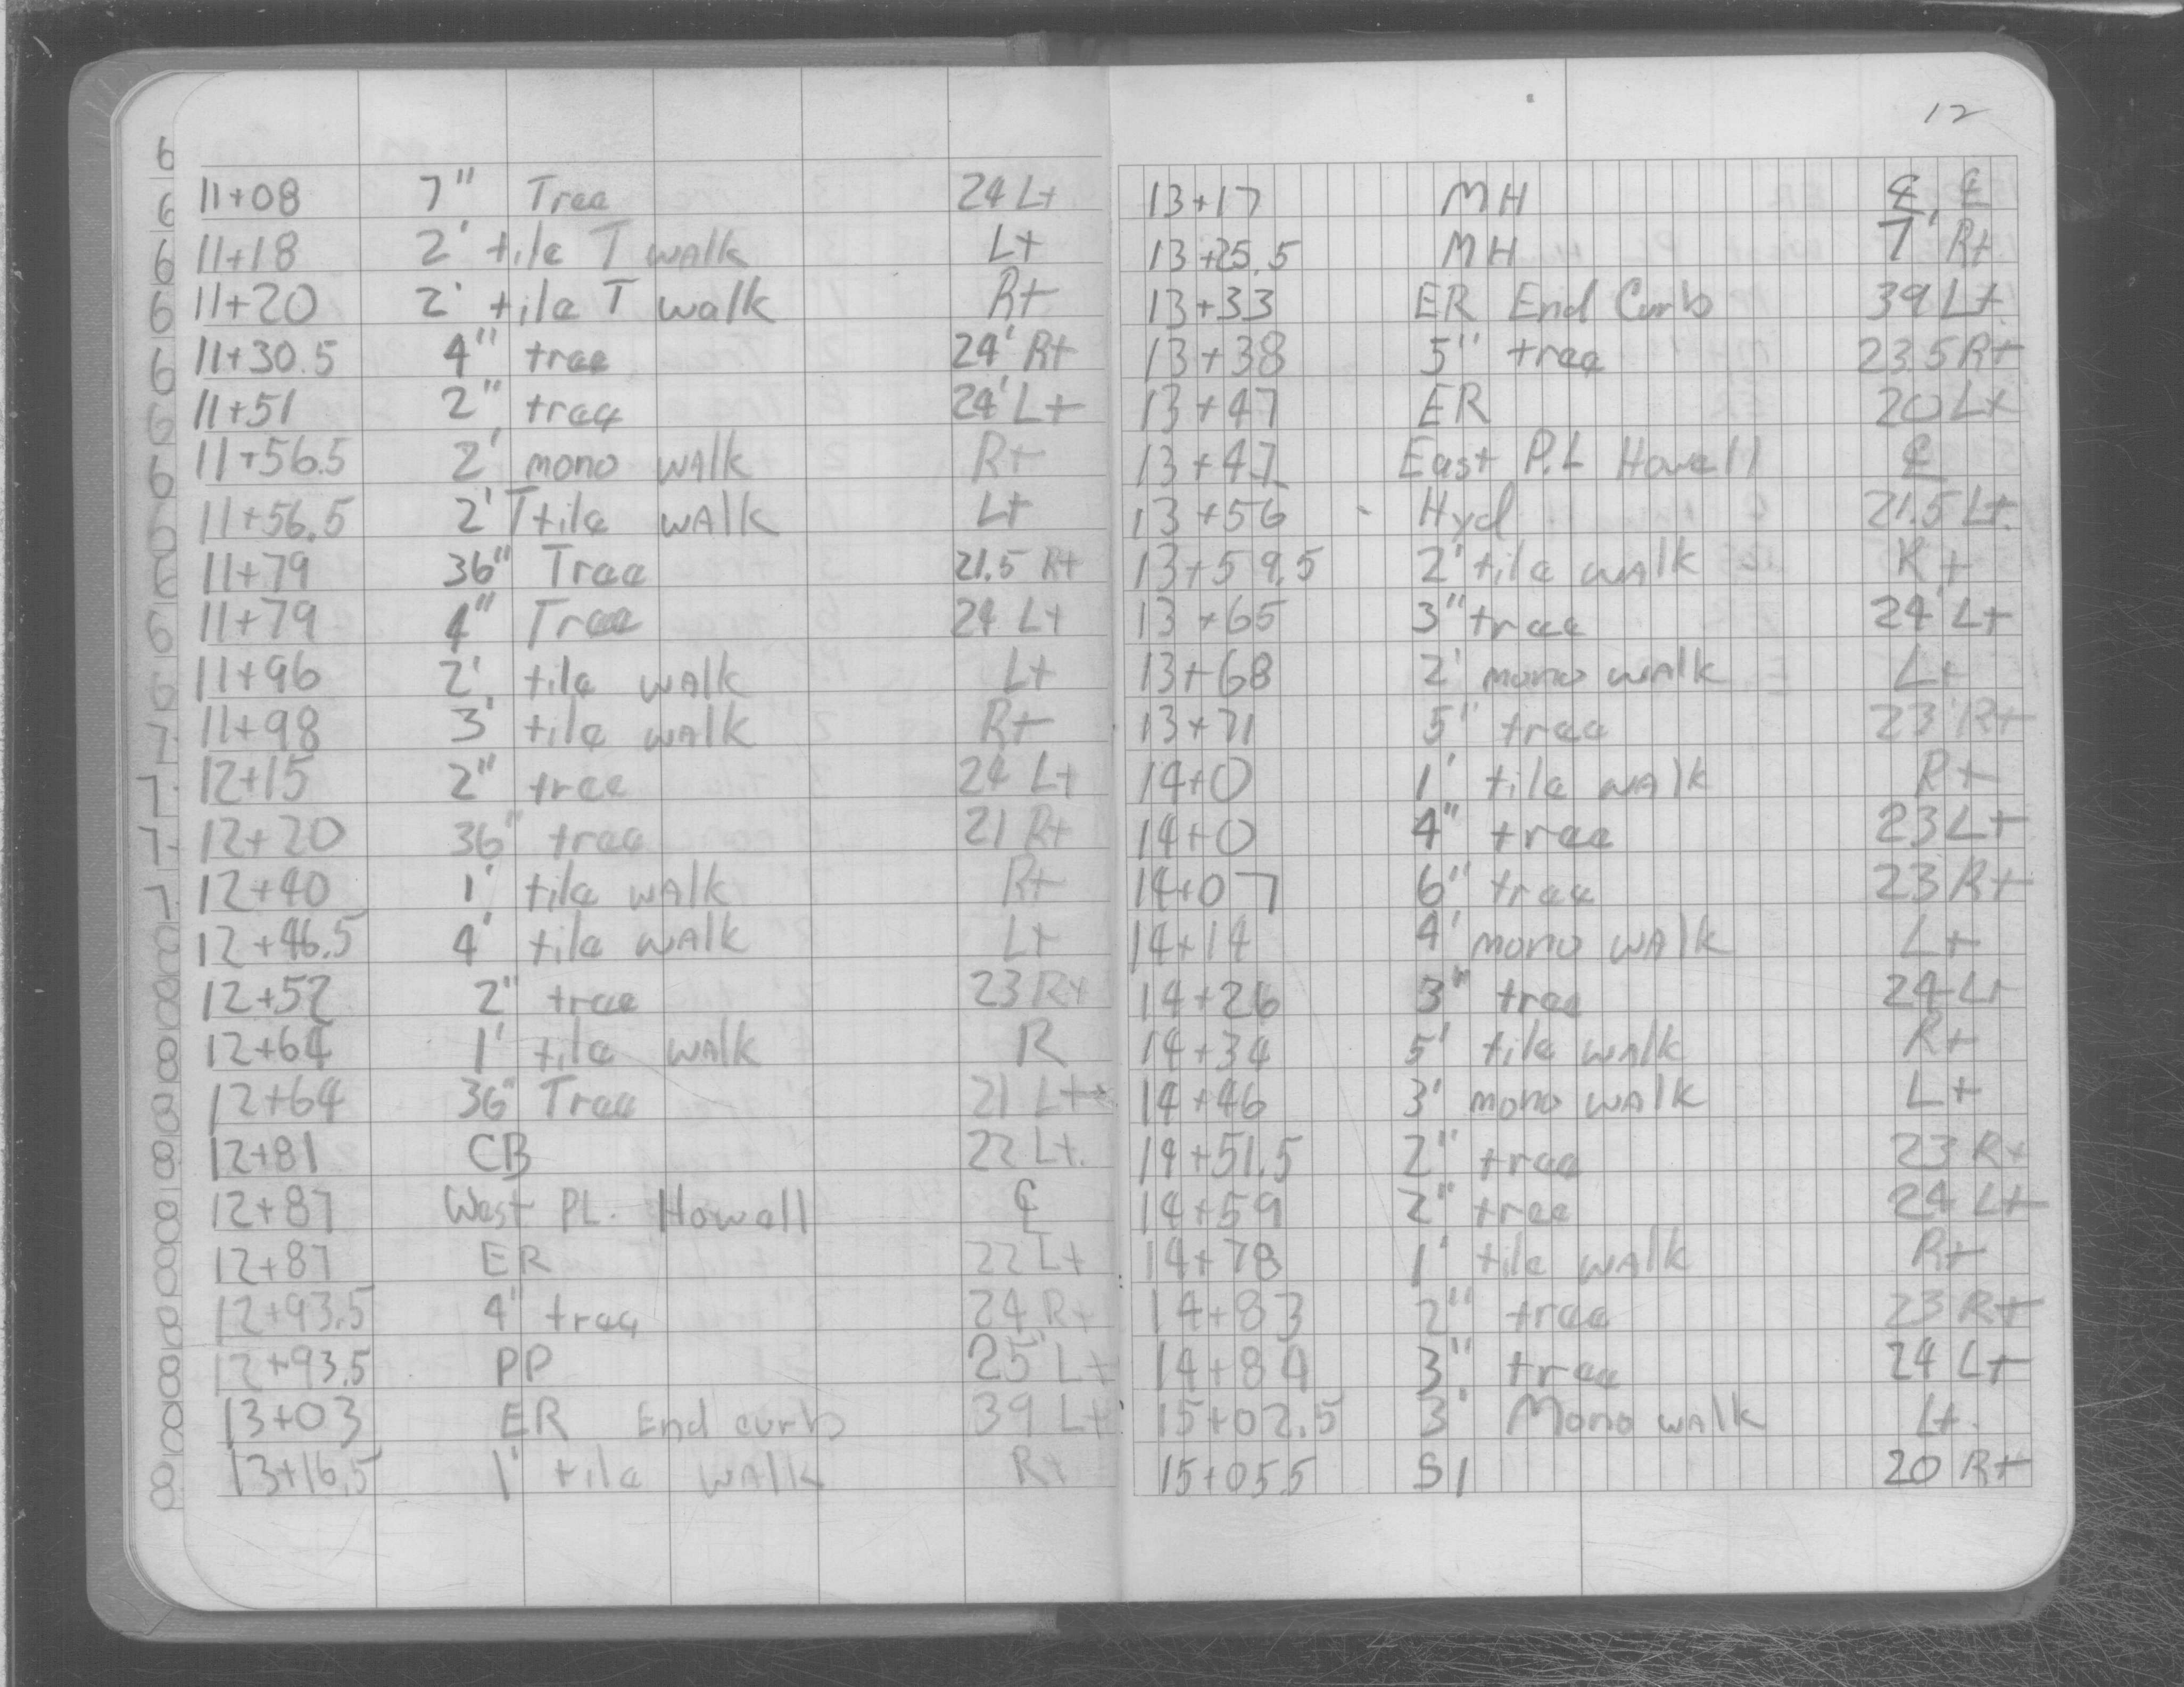 11+08 7" Tree 24 Lt
11+18 2' tile T walk Lt
11+20 2' tile T walk Rt
11+30.5 4" tree 24' Rt
11+51 2" tree 24' Lt
11+56.5 2' mono walk Rt
11+56.5 2' T tile walk Lt
11+79 36" Tree 21.5 Rt
11+79 4" Tree 24 Lt
11+96 2' tile walk Lt
11+98 3' tile walk Rt
12+15 2" tree 24 Lt
12+20 36" tree 21 Rt
12+40 1' tile walk Rt
12+46.5 4' tile walk Lt
12+52 2" tree 23 Rt
12+64 1' tile walk R
12+64 36" Tree 21 Lt
12+81 CB 22 Lt.
12+87 West PL. Howell ℄
12+87 ER 22 Lt
12+93.5 4" tree 24 Rt
12+93.5 PP 25' Lt
13+03 ER End curb 39 Lt
13+16.5 1' tile walk Rt
12
13+17 MH ℄ ℄
13+25.5 MH 7' Rt
13+33 ER End Curb 39 Lt.
13+38 5" tree 23.5 Rt
13+47 ER 20 Lt
13+47 East P.L Howell ℄
13+56 - Hyd 21.5 Lt.
13+59.5 2' tile walk Rt
13+65 3" tree 24' Lt
13+68 2' mono walk Lt
13+71 5" tree 23' Rt
14+0 1' tile walk Rt
14+0 4" tree 23 Lt
14+07 6" tree 23 Rt
14+14 4' mono walk Lt
14+26 3" tree 24 Lt
14+34 5' tile walk Rt
14+46 3' mono walk Lt
14+51.5 2" tree 23 Rt
14+59 2" tree 24 Lt
14+78 1' tile walk Rt
14+83 2" tree 23 Rt
14+84 3" tree 24 Lt
15+02.5 3' Mono walk Lt.
15+05.5 SI 20 Rt